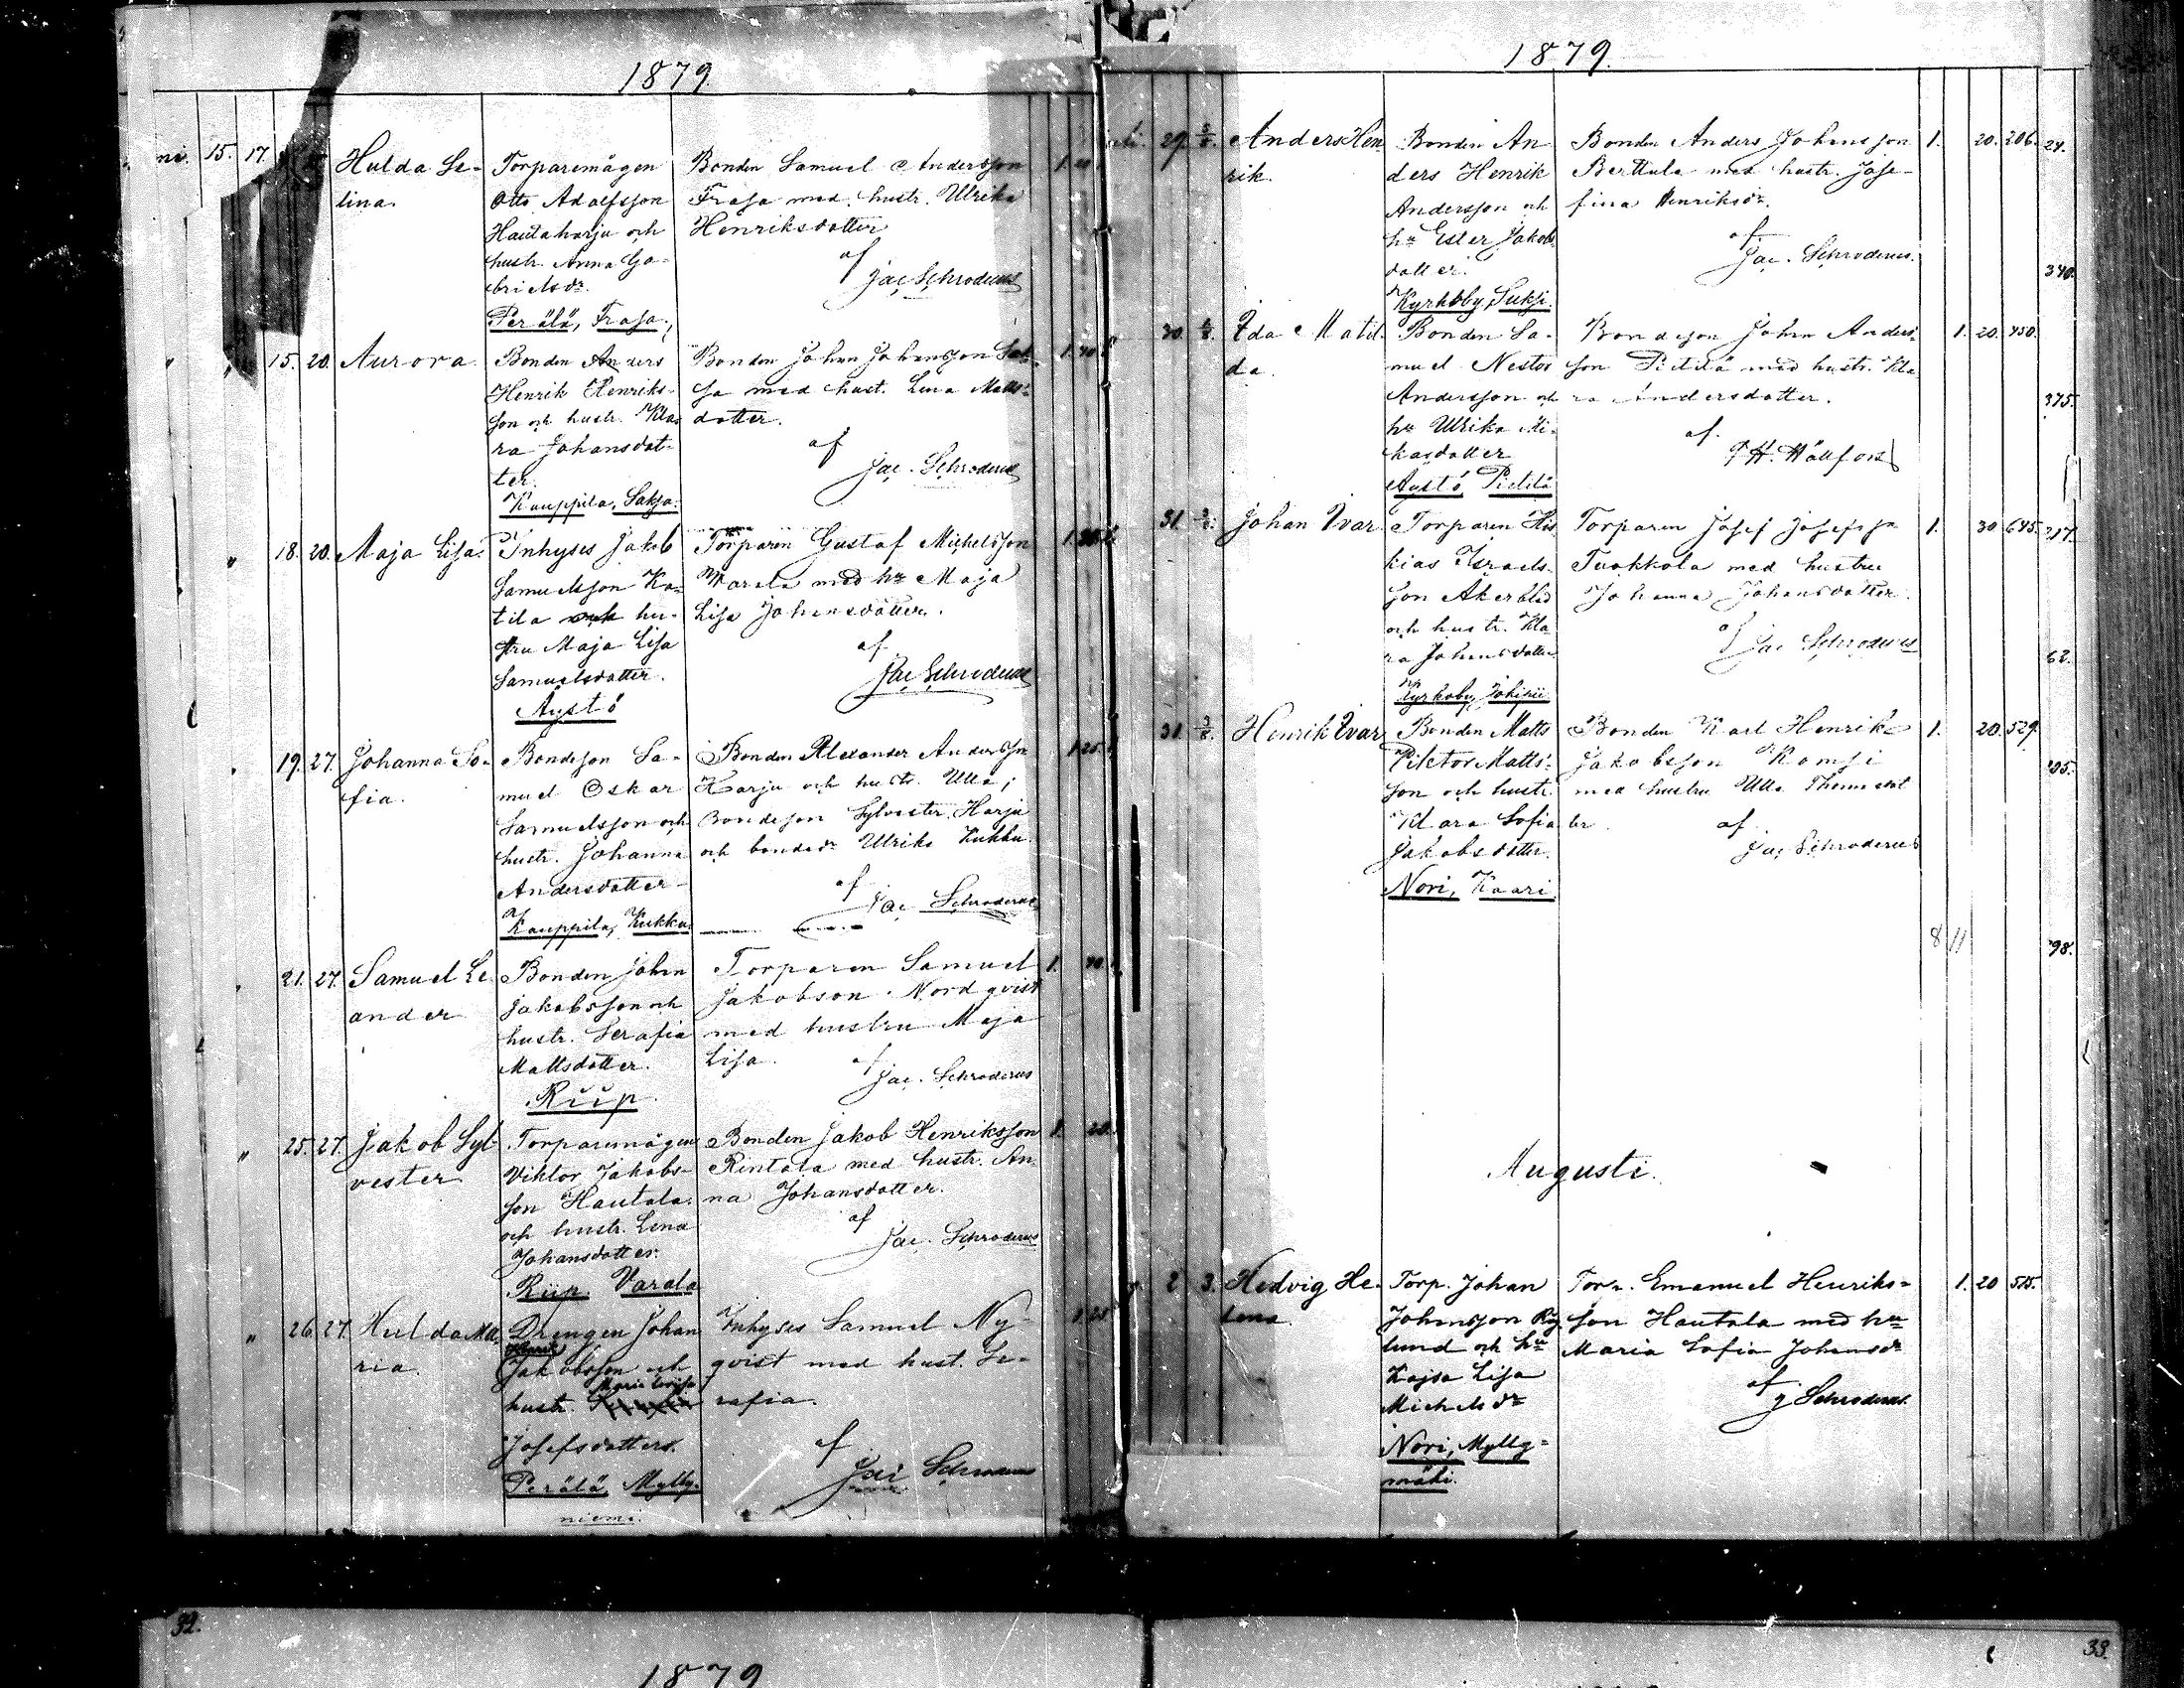 1879.
15. 17. Hulda Se-
lina.
Torparemågen
Otto Adolfsson
Hautaharju och
hustr. Anna Ga-
brielsdr.
Perälä, Frasa.
Bonden Samuel Andersson
Frasa med hustr. Ulrika
Henriksdotter
af
Jac. Schroderus
" 15. 20. Aurora
Bonden Anders
Henrik Henriks-
son och hustr. Kla-
ra Johansdot-
ter.
Kauppila, Saksa.
Bonden Johan Johansson Sak-
sa med hust. Lena Matts-
dotter.
af
Jac. Schroderus
" 18. 20. Maja Lisa.
Inhyses Jakob
Samuelsson Ka-
tila och hu-
stru Maja Lisa
Samuelsdotter.
Äystö
Torparen Gustaf Michelsson
Warala med hu Maja
Lisa Johansdotter.
af
Jac Schroderus
19. 27. Johanna So-
fia.
Bondeson Sa-
muel Oskar
Samuelsson och
hustr. Johanna
Andersdotter
Kauppila, Kukku
Bonden Alexander Andersson
Harju och hustr. Ulla;
Bondeson Sylvester Harju
och bondedr Ulrika Kukku.
af
Jac Schroderus
21. 27. Samuel Le-
ander
Bonden Johan
Jakobsson och
hustr. Serafia
Mattsdotter.
Riip.
Torparen Samuel
Jakobson Nordqvist
med hustru Maja
Lisa.
af
Jac. Schroderus
" 25. 27. Jakob Syl-
vester
Torparemågen
Viktor Jakobs-
son Hautala
och hustr. Lena
Johansdotter.
Riip. Varala
Bonden Jakob Henriksson
Rintala med hustr. An-
na Johansdotter.
af
Jac. Schroderus
" 26. 27. Hulda Ma-
ria.
Drengen Johan
Henrik
Jakobsson och
Maria Lovisa
hustr.
Josefsdotter.
Perälä Mylly-
niemi.
Inhyses Samuel Ny-
qvist med hust. Se-
rafia.
af
Jac Schroderus
1879.
29. 3/8. Anders Hen-
rik.
Bonden An-
ders Henrik
Andersson och
hu Ester Jakobs-
dotter.
Kyrkoby, Suksi.
Bonden Anders Johansson
Berttula med hustr. Jose-
fina Henriksdr.
af
Jac. Schroderus.
1. 20. 206.
30. Ida Matil-
da.
Bonden Sa-
muel Nestor
Andersson och
hu Ulrika Mi-
kasdotter
Äystö, Pietilä
Bondeson Johan Anders-
son Pietilä med hustr. Kla-
ra Andersdotter.
af.
H. Hällfors
1. 20. 450.
31. 3/8. Johan Ivar
Torparen His-
kias Israels-
son Åkerblad
och hustr. Kla-
ra Johansdotter
Kyrkoby, Jokipii
Torparen Josef Josefsson
Tuokkola med hustru
Johanna Johansdotter.
af
Jac Schroderus
1. 30 645.
31. 3/8. Henrik Ivar
Bonden Matts
Viktor Matts-
son och hustr.
Klara Sofia
Jakobsdotter.
Nori, Kaari
Bonden Karl Henrik
Jakobsson Romsi
med hustru Ulla Thomasdot-
ter
af
Jac Schroderus
1. 20. 529.
8 11
Augusti.
2 3. Hedvig He-
lena
Torp. Johan
Johansson Ny-
lund och hu
Kajsa Lisa
Michelsdr
Nori, Mylly-
mäki.
Torp. Emanuel Henriks-
son Hautala med hu
Maria Sofia Johansdr
af
J Schroderus.
1. 20 515.
24.
340.
375.
217.
62.
98.
32.
33.
1879